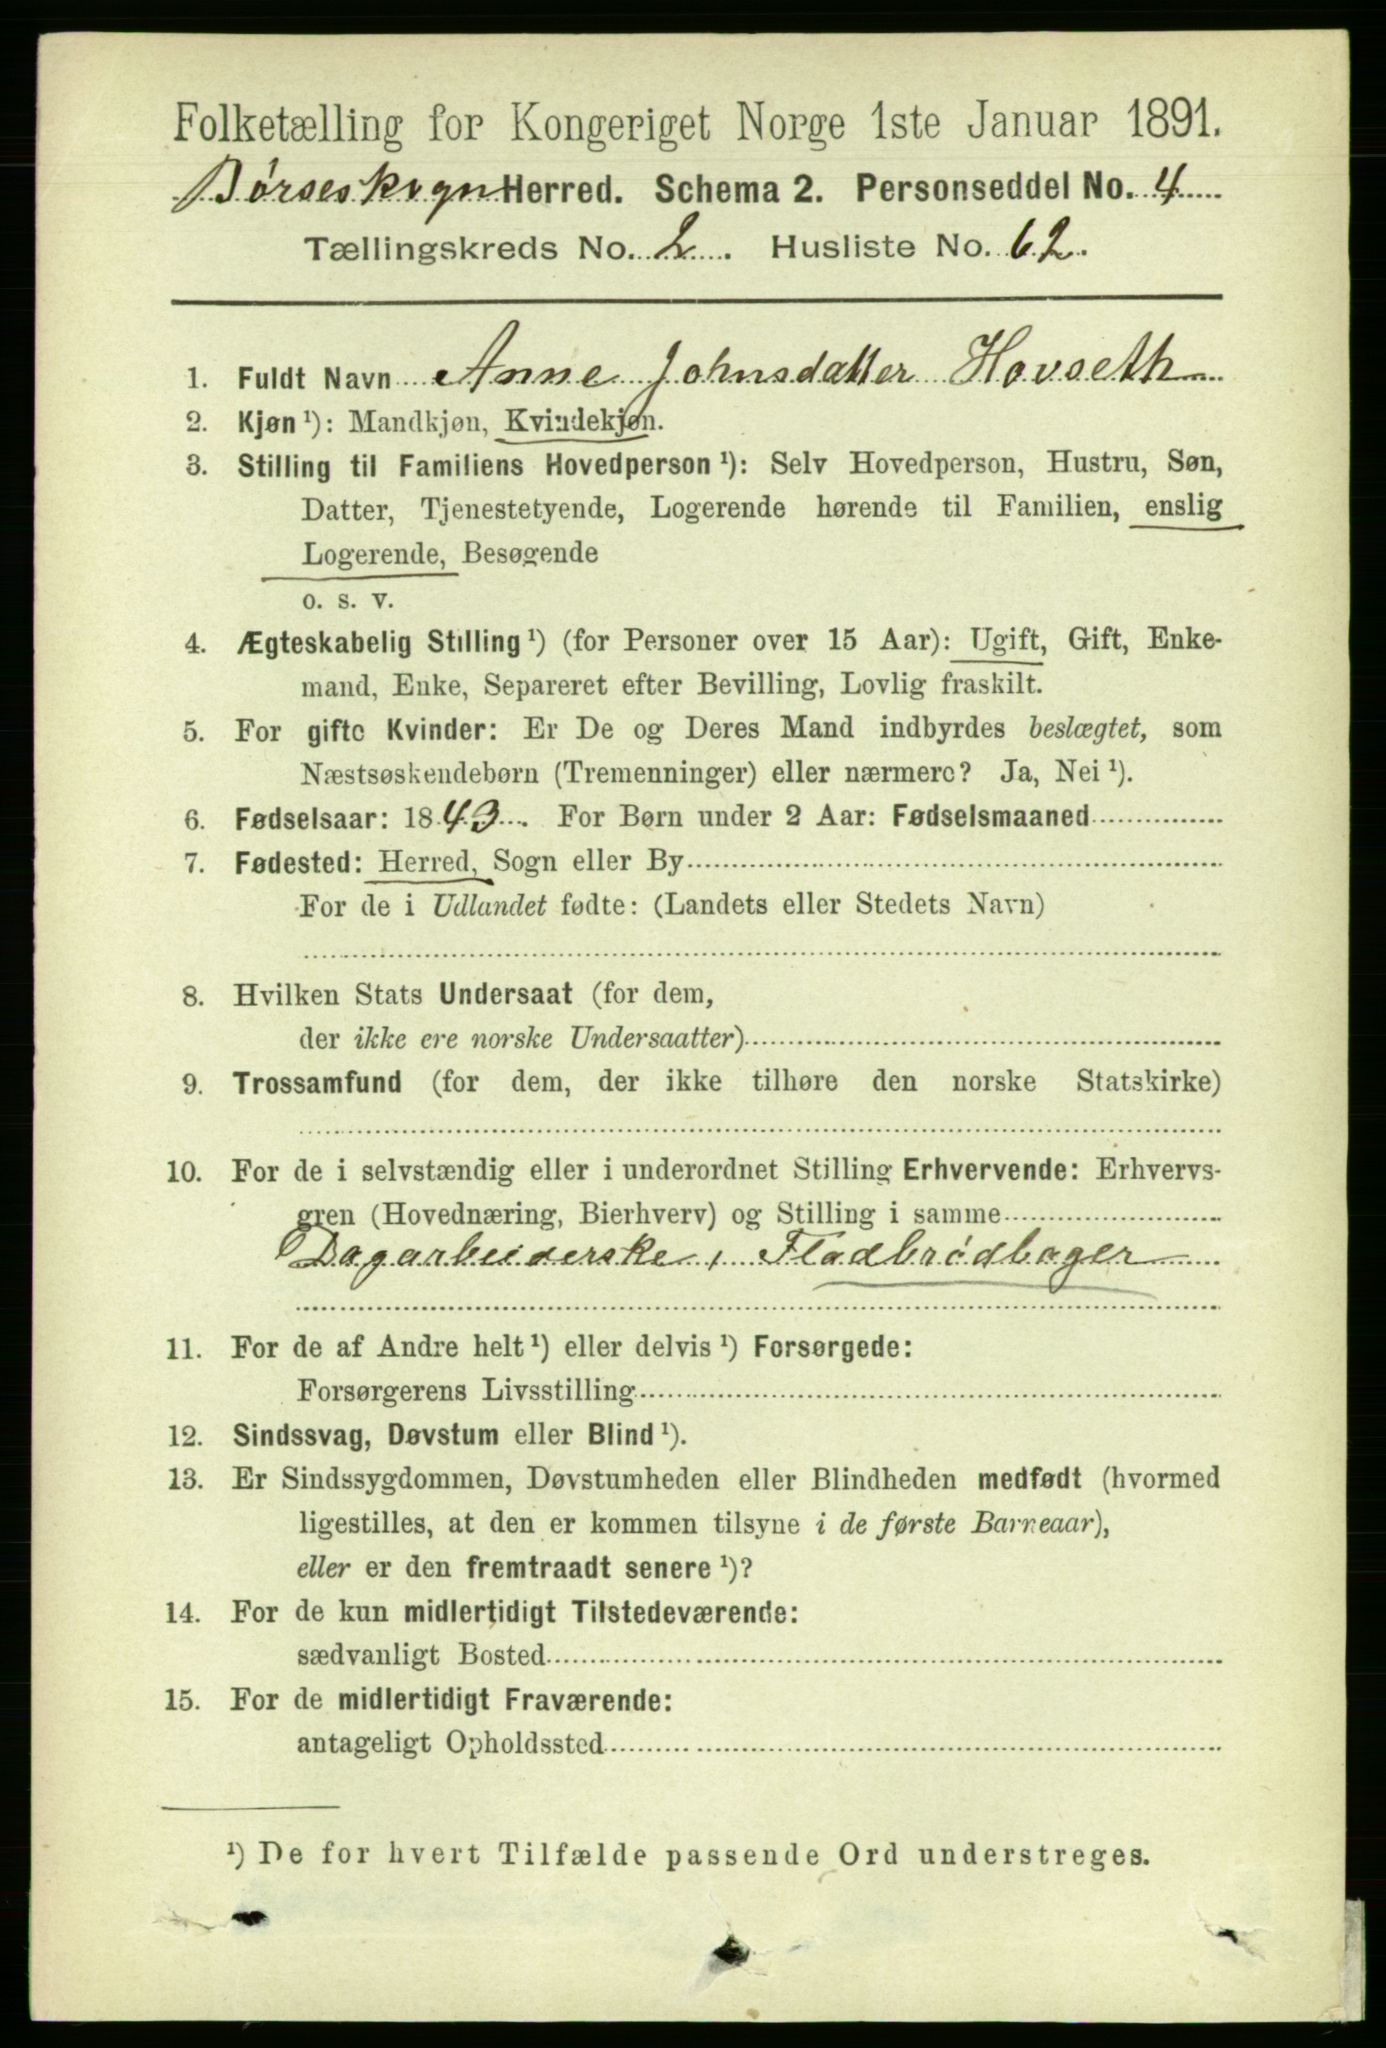 Folketælling for Kongeriget Norge 1ste Januar 1891.
Børseskogn Herred. Schema 2. Personseddel No. 4
Tællingskreds No. 2. Husliste No. 62.
1. Fuldt Navn Anne Johnsdatter Hovseth
2. Kjøn ¹): Mandkjøn, Kvindekjøn.
3. Stilling til Familiens Hovedperson ¹): Selv Hovedperson, Hustru, Søn,
Datter, Tjenestetyende, Logerende hørende til Familien, enslig
Logerende, Besøgende
o. s. v.
4. Ægteskabelig Stilling ¹) (for Personer over 15 Aar): Ugift, Gift, Enke-
mand, Enke, Separeret efter Bevilling, Lovlig fraskilt.
5. For gifte Kvinder: Er De og Deres Mand indbyrdes beslægtet, som
Næstsøskendebørn (Tremenninger) eller nærmere? Ja, Nei ¹).
6. Fødselsaar: 1843. For Børn under 2 Aar: Fødselsmaaned
7. Fødested: Herred, Sogn eller By
For de i Udlandet fødte: (Landets eller Stedets Navn)
8. Hvilken Stats Undersaat (for dem,
der ikke ere norske Undersaatter)
9. Trossamfund (for dem, der ikke tilhøre den norske Statskirke)
10. For de i selvstændig eller i underordnet Stilling Erhvervende: Erhvervs-
gren (Hovednæring, Bierhverv) og Stilling i samme
Dagarbeiderske, Fladbrødbager
11. For de af Andre helt ¹) eller delvis ¹) Forsørgede:
Forsørgerens Livsstilling
12. Sindssvag, Døvstum eller Blind ¹).
13. Er Sindssygdommen, Døvstumheden eller Blindheden medfødt (hvormed
ligestilles, at den er kommen tilsyne i de første Barneaar),
eller er den fremtraadt senere ¹)?
14. For de kun midlertidigt Tilstedeværende:
sædvanligt Bosted
15. For de midlertidigt Fraværende:
antageligt Opholdssted
¹) De for hvert Tilfælde passende Ord understreges.